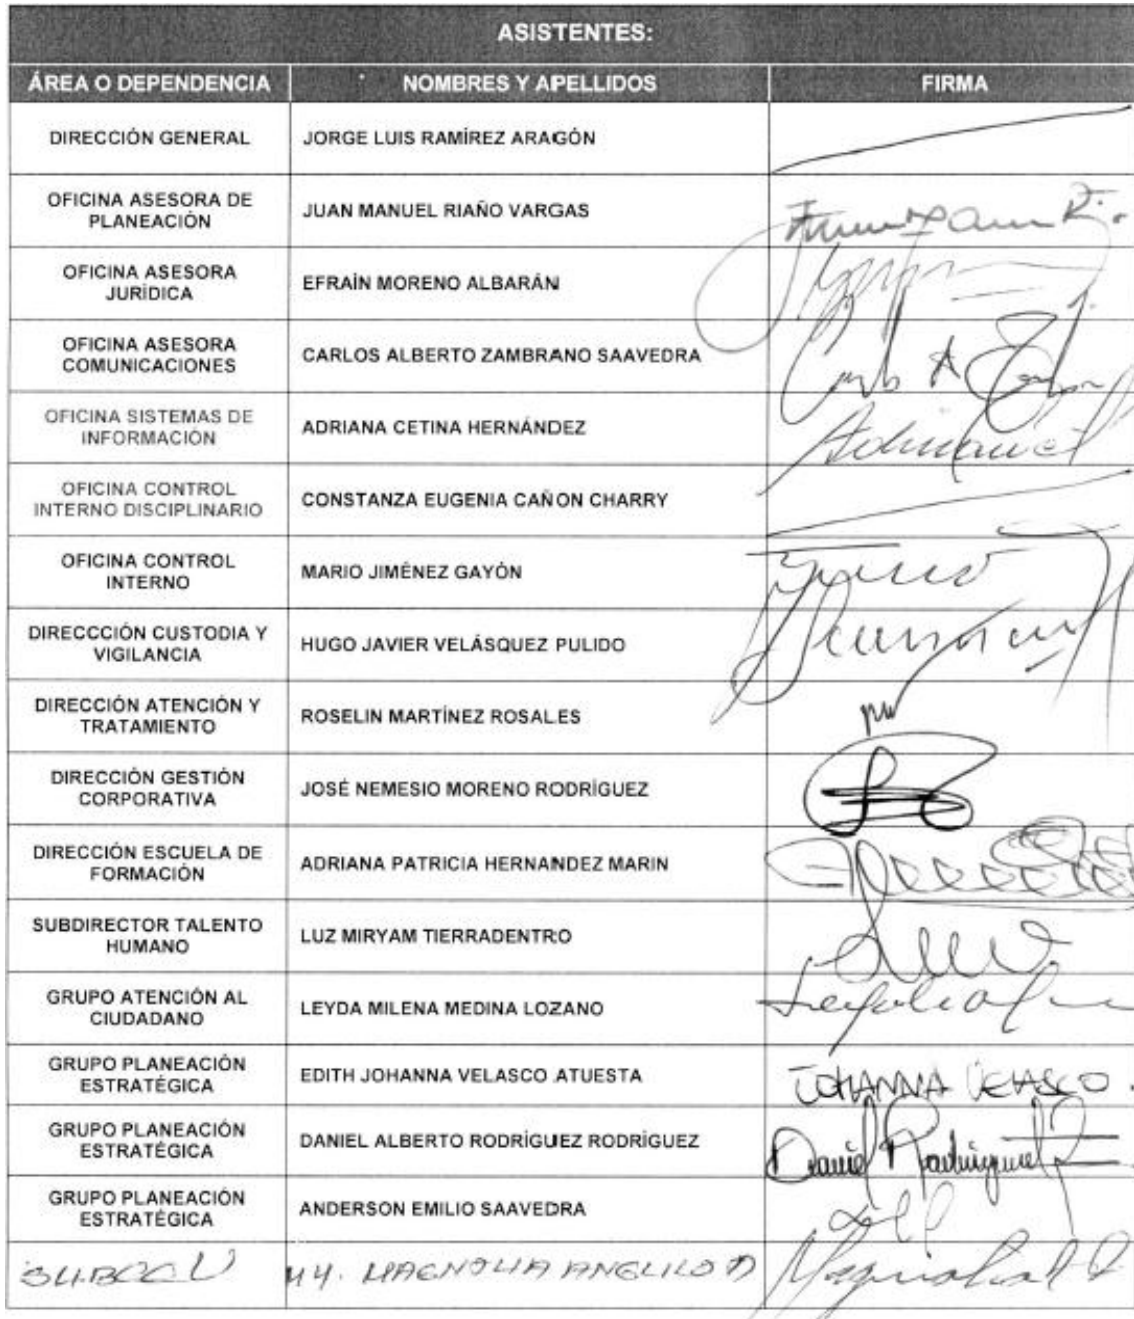 ASISTENTES:
ÁREA O DEPENDENCIA NOMBRES Y APELLIDOS FIRMA
DIRECCIÓN GENERAL JORGE LUIS RAMÍREZ ARAGÓN
OFICINA ASESORA DE
PLANEACIÓN JUAN MANUEL RIAÑO VARGAS
OFICINA ASESORA
JURÍDICA EFRAÍN MORENO ALBARÁN
OFICINA ASESORA
COMUNICACIONES CARLOS ALBERTO ZAMBRANO SAAVEDRA
OFICINA SISTEMAS DE
INFORMACIÓN ADRIANA CETINA HERNÁNDEZ
OFICINA CONTROL
INTERNO DISCIPLINARIO CONSTANZA EUGENIA CAÑON CHARRY
OFICINA CONTROL
INTERNO MARIO JIMÉNEZ GAYÓN
DIRECCCIÓN CUSTODIA Y
VIGILANCIA HUGO JAVIER VELÁSQUEZ PULIDO
DIRECCIÓN ATENCIÓN Y
TRATAMIENTO ROSELIN MARTÍNEZ ROSALES
DIRECCIÓN GESTIÓN
CORPORATIVA JOSÉ NEMESIO MORENO RODRÍGUEZ
DIRECCIÓN ESCUELA DE
FORMACIÓN ADRIANA PATRICIA HERNANDEZ MARIN
SUBDIRECTOR TALENTO
HUMANO LUZ MIRYAM TIERRADENTRO
GRUPO ATENCIÓN AL
CIUDADANO LEYDA MILENA MEDINA LOZANO
GRUPO PLANEACIÓN
ESTRATÉGICA EDITH JOHANNA VELASCO ATUESTA JOHANNA VELASCO.
GRUPO PLANEACIÓN
ESTRATÉGICA DANIEL ALBERTO RODRÍGUEZ RODRÍGUEZ Daniel Rodriguez
GRUPO PLANEACIÓN
ESTRATÉGICA ANDERSON EMILIO SAAVEDRA
MAGNOLIA